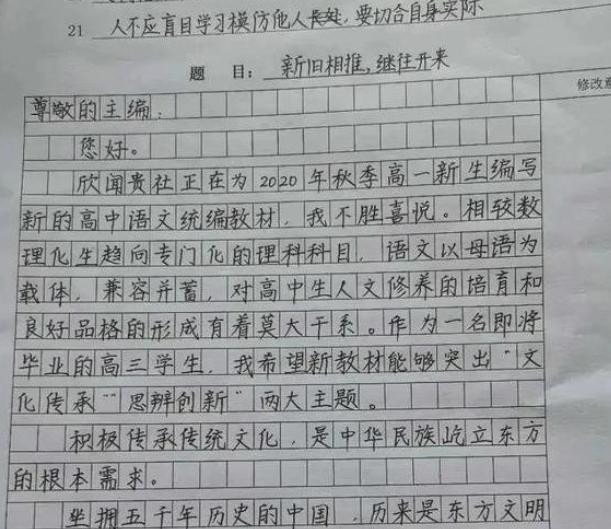 21 人不应盲目学习模仿他人长处,要切合自身实际
题 目: 新旧相推,继往开来
修改意
尊敬的主编:
您好。
欣闻贵社正在为2020年秋季高一新生编写
新的高中语文统编教材,我不胜喜悦。相较数
理化生趋向专门化的理科科目,语文以母语为
载体,兼容并蓄,对高中生人文修养的培育和
良好品格的形成有着莫大干系。作为一名即将
毕业的高三学生,我希望新教材能够突出“文
化传承”“思辨创新”两大主题。
积极传承传统文化,是中华民族屹立东方
的根本需求。
坐拥五千年历史的中国,历来是东方文明